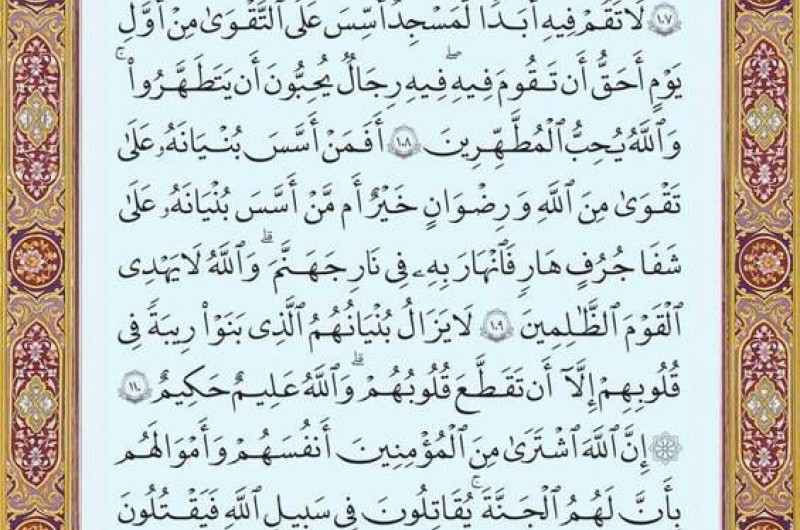 ١٠٧ لَا تَقُمْ فِيهِ أَبَدًا لَّمَسْجِدٌ أُسِّسَ عَلَى ٱلتَّقْوَىٰ مِنْ أَوَّلِ
يَوْمٍ أَحَقُّ أَن تَقُومَ فِيهِۚ فِيهِ رِجَالٌ يُحِبُّونَ أَن يَتَطَهَّرُوا۟ۚ
وَٱللَّهُ يُحِبُّ ٱلْمُطَّهِّرِينَ ١٠٨ أَفَمَنْ أَسَّسَ بُنْيَٰنَهُۥ عَلَىٰ
تَقْوَىٰ مِنَ ٱللَّهِ وَرِضْوَٰنٍ خَيْرٌ أَم مَّنْ أَسَّسَ بُنْيَٰنَهُۥ عَلَىٰ
شَفَا جُرُفٍ هَارٍ فَٱنْهَارَ بِهِۦ فِى نَارِ جَهَنَّمَۗ وَٱللَّهُ لَا يَهْدِى
ٱلْقَوْمَ ٱلظَّٰلِمِينَ ١٠٩ لَا يَزَالُ بُنْيَٰنُهُمُ ٱلَّذِى بَنَوْا۟ رِيبَةً فِى
قُلُوبِهِمْ إِلَّآ أَن تَقَطَّعَ قُلُوبُهُمْۗ وَٱللَّهُ عَلِيمٌ حَكِيمٌ ١١٠
۞ إِنَّ ٱللَّهَ ٱشْتَرَىٰ مِنَ ٱلْمُؤْمِنِينَ أَنفُسَهُمْ وَأَمْوَٰلَهُم
بِأَنَّ لَهُمُ ٱلْجَنَّةَۚ يُقَٰتِلُونَ فِى سَبِيلِ ٱللَّهِ فَيَقْتُلُونَ